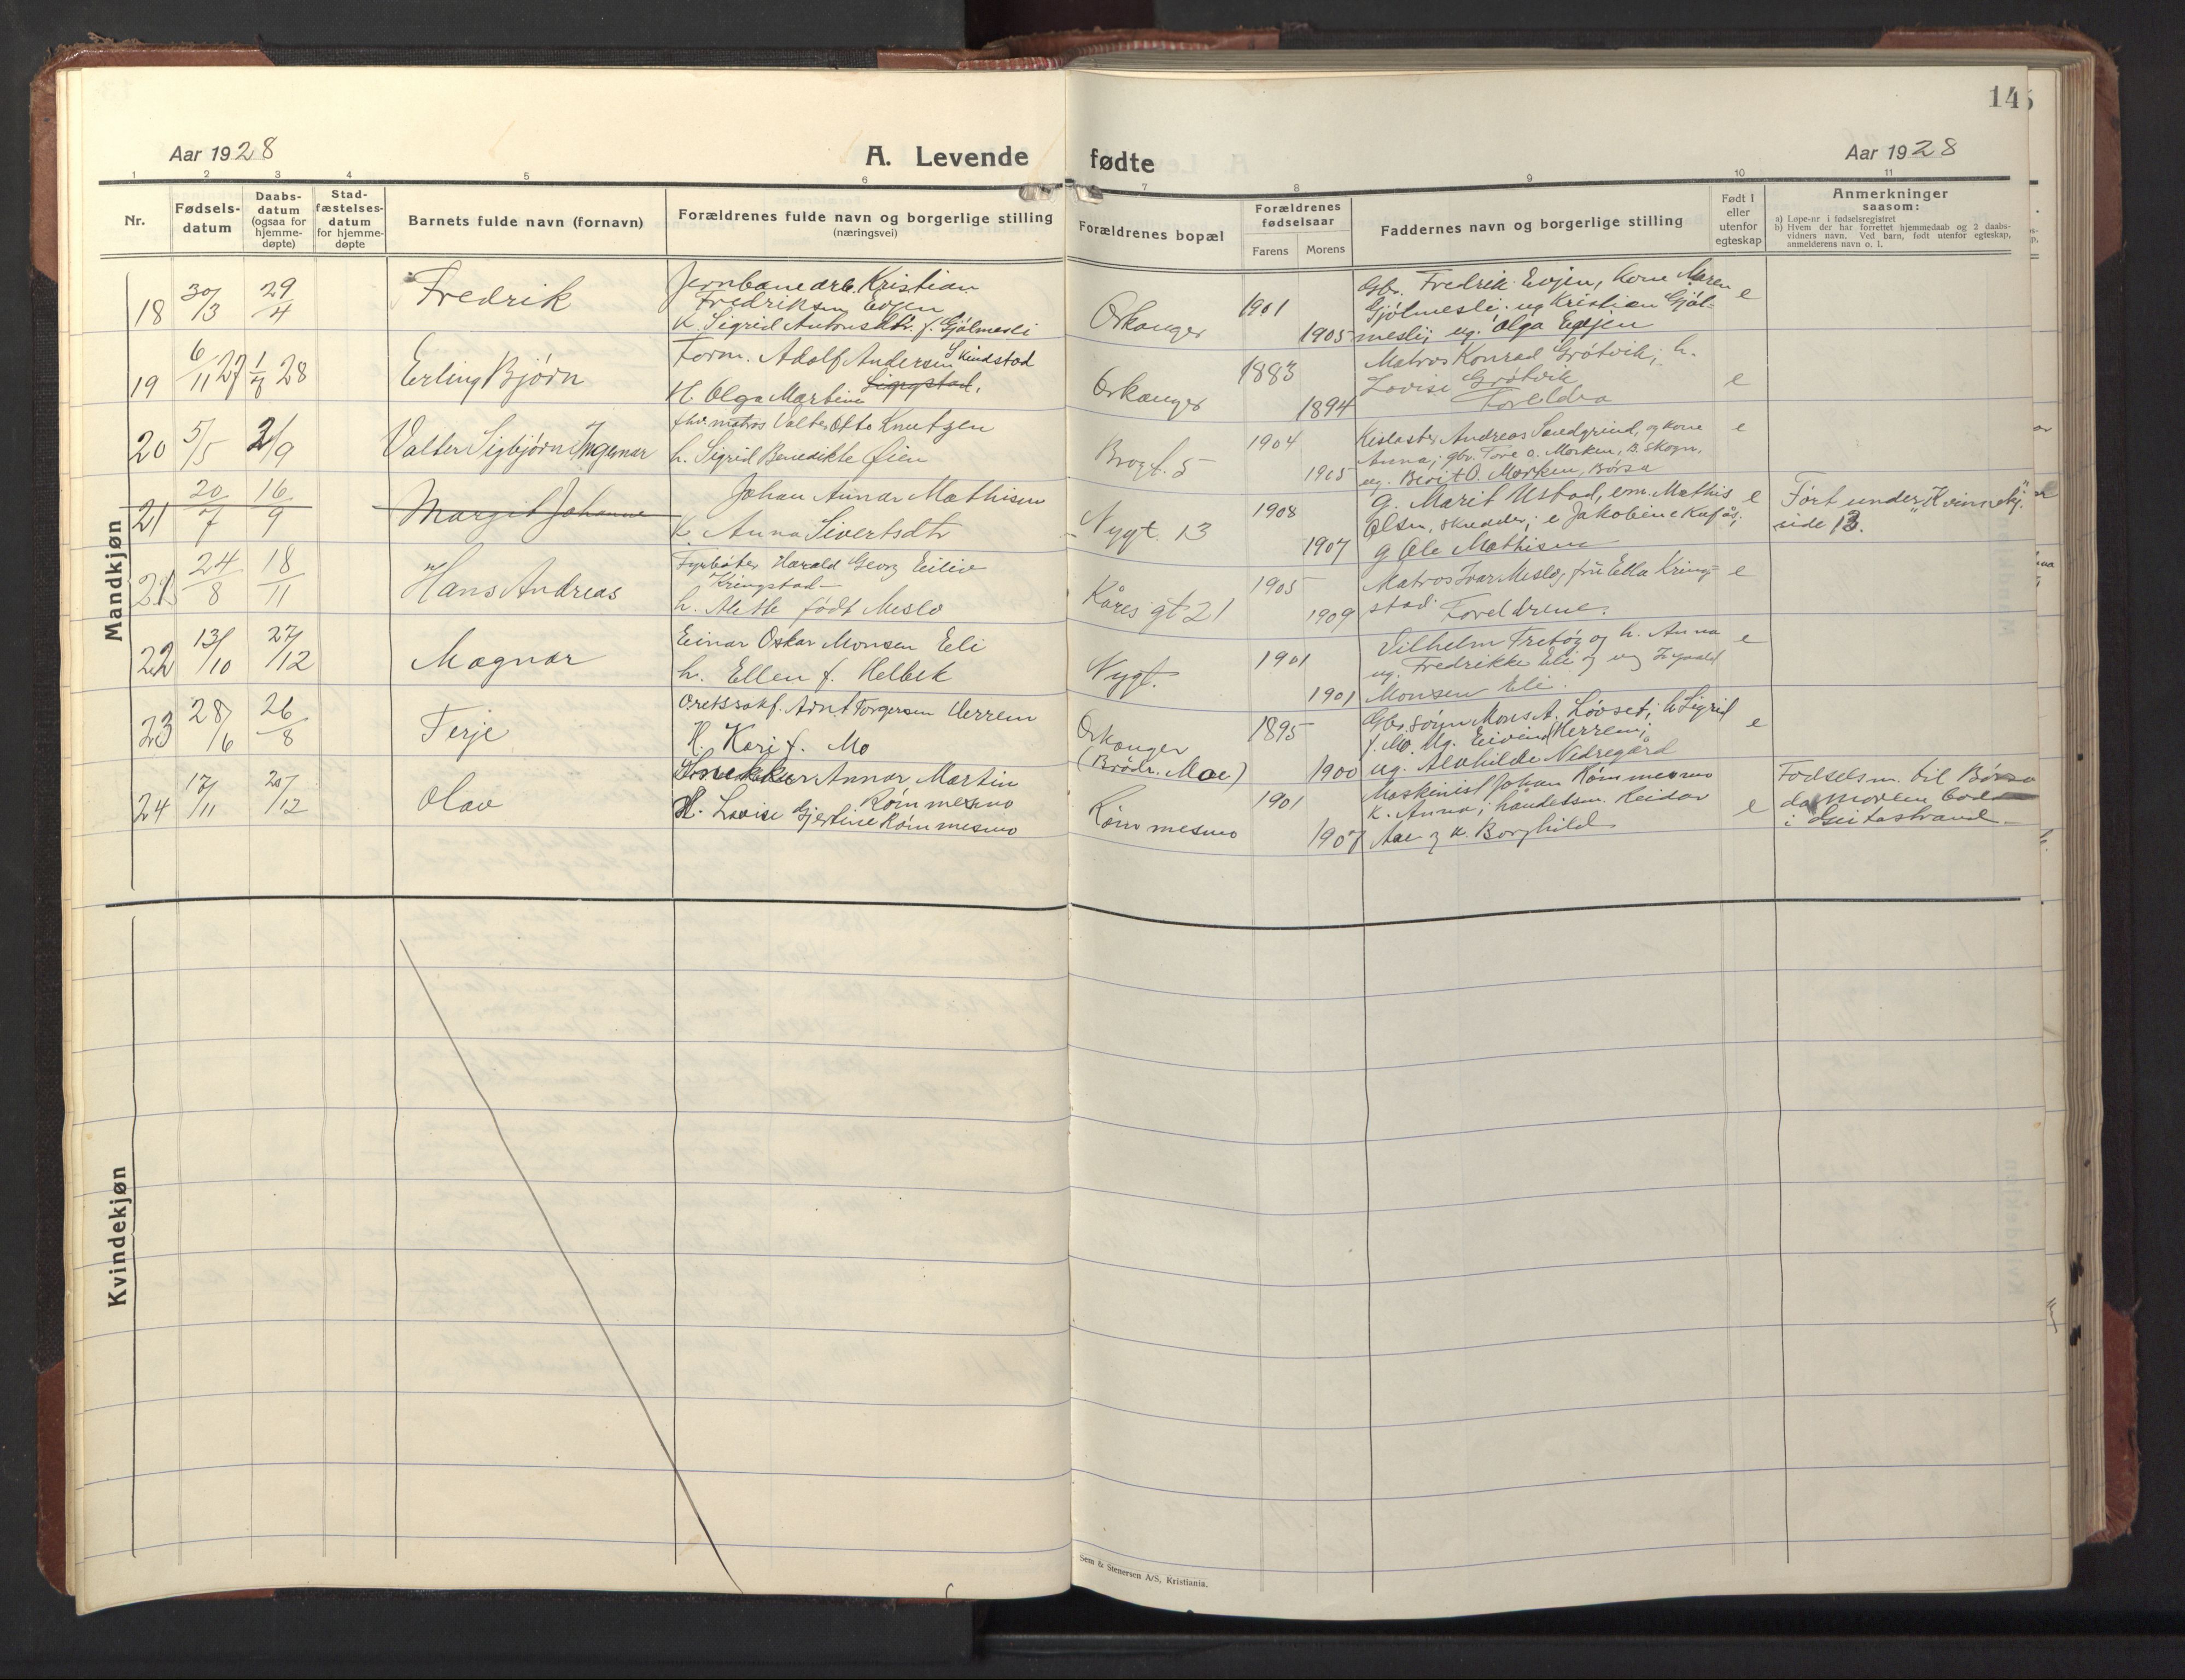 14
Aar 1928
A. Levende
fødte
Aar 1928
1 2 3 4 5 6 7 8 9 10 11
Nr.
Fødsels-
datum
Daabs-
datum
(ogsaa for
hjemme-
døpte)
Stad-
fæstelses-
datum
for hjemme-
døpte
Barnets fulde navn (fornavn)
Forældrenes fulde navn og borgerlige stilling
(næringsvei)
Forældrenes bopæl
Forældrenes
fødselsaar
Farens
Morens
Faddernes navn og borgerlige stilling
Født i
eller
utenfor
egteskap
Anmerkninger
saasom:
a) Løpe-nr i fødselsregistret
b) Hvem der har forrettet hjemmedaab og 2 daabs-
vidners navn. Ved barn, født utenfor egteskap,
anmelderens navn o. l.
Mandkjøn
18 30/3 29/4 Fredrik
Jernbanearb. Kristian
Fredriksen Evjen
K. Sigrid Antonsdtr. f. Gjølmesli
Orkanger 1901 1905
Gbr. Fredrik Evjen, kone Maren
Gjølmesli; ug Kristian Gjøl-
mesli; ug. Olga Evjen
e
19 6/11 27 1/4 28 Erling Bjørn
Form. Adolf Andersen Skindstad
H. Olga Martine
Orkanger 1883 1894
Matros Konrad Grøtvik; h.
Lovise Grøtvik
Foreldra
e
20 5/5 2/9 Valter Sigbjørn Ingemar
fhv. matros Valter Otto Knutzen
h. Sigrid Benedikte Øien
Brogt. 5 1904 1905
Andreas Sandgrind, og kone
Anna; gbr. Tore O. Morken, B. Skogn,
ug. Berit O. Morken, Børsa
e
21 20/7 16/9 Margit Johanne
Johan Annar Mathisen
K. Anna Sivertsdtr
Nygt. 13 1908 1907
g. Marit Ustad, em. Mathis
Olsen, skredder; e Jakobine
g Ole Mathisen
e
Ført under "Kvinnekj."
side 13.
21 24/8 18/11 Hans Andreas
Fyrbøter Harald Georg Eiliv
Kringstad
h. Alethe født Meslo
Kåres gt 21 1905 1909
Matros Ivar Meslo, fru Ella Kring-
stad. Foreldrene.
e
22 13/10 27/12 Magnar
Einar Oskar Monsen Eli
h. Ellen f. Helbek
Nygt. 1901 1901
Vilhelm Fretøy og h. Anna
ug. Fredrikke Eli og ug
Monsen Eli.
e
23 28/6 26/8 Terje
Overrsakf. Arnt Torgersen Herrem
H. Kari f. Mo
Orkanger
(Brødr. Moe)
1895 1900
Gbr.sønn Mons A. Løvset; h Sigrid
f. Mo. Ug. Eivind Herrem;
ug. Alvhilde Nedregård
e
24 17/11 20/12 Olav
Snekker Annar Martin
Rømmesmo
H. Lovise Gjertine Rømmesmo
Rømmesmo 1901 1907
Maskinist Johan Rømmesmo
K. Anna; handelsm. Reidar
Aae og k. Borghild
e
Fødselsm. til Børsa
da moren bodde
i Geitastrand
Kvindekjøn
Sem & Stenersen A/S, Kristiania.